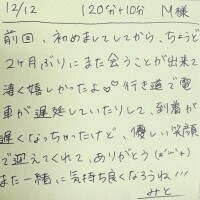 12/12 120分+10分 M様
前回、初めましてしてから、ちょうど
2ヶ月ぶりにまた会うことが出来て
凄く嬉しかったよ♡♡ 行き道で電
車が遅延していたりして、到着が
遅くなっちゃたけど、優しい笑顔
で迎えてくれて、ありがとう(๑'ᴗ'๑)
また一緒に気持ち良くなろうね!!!
みと